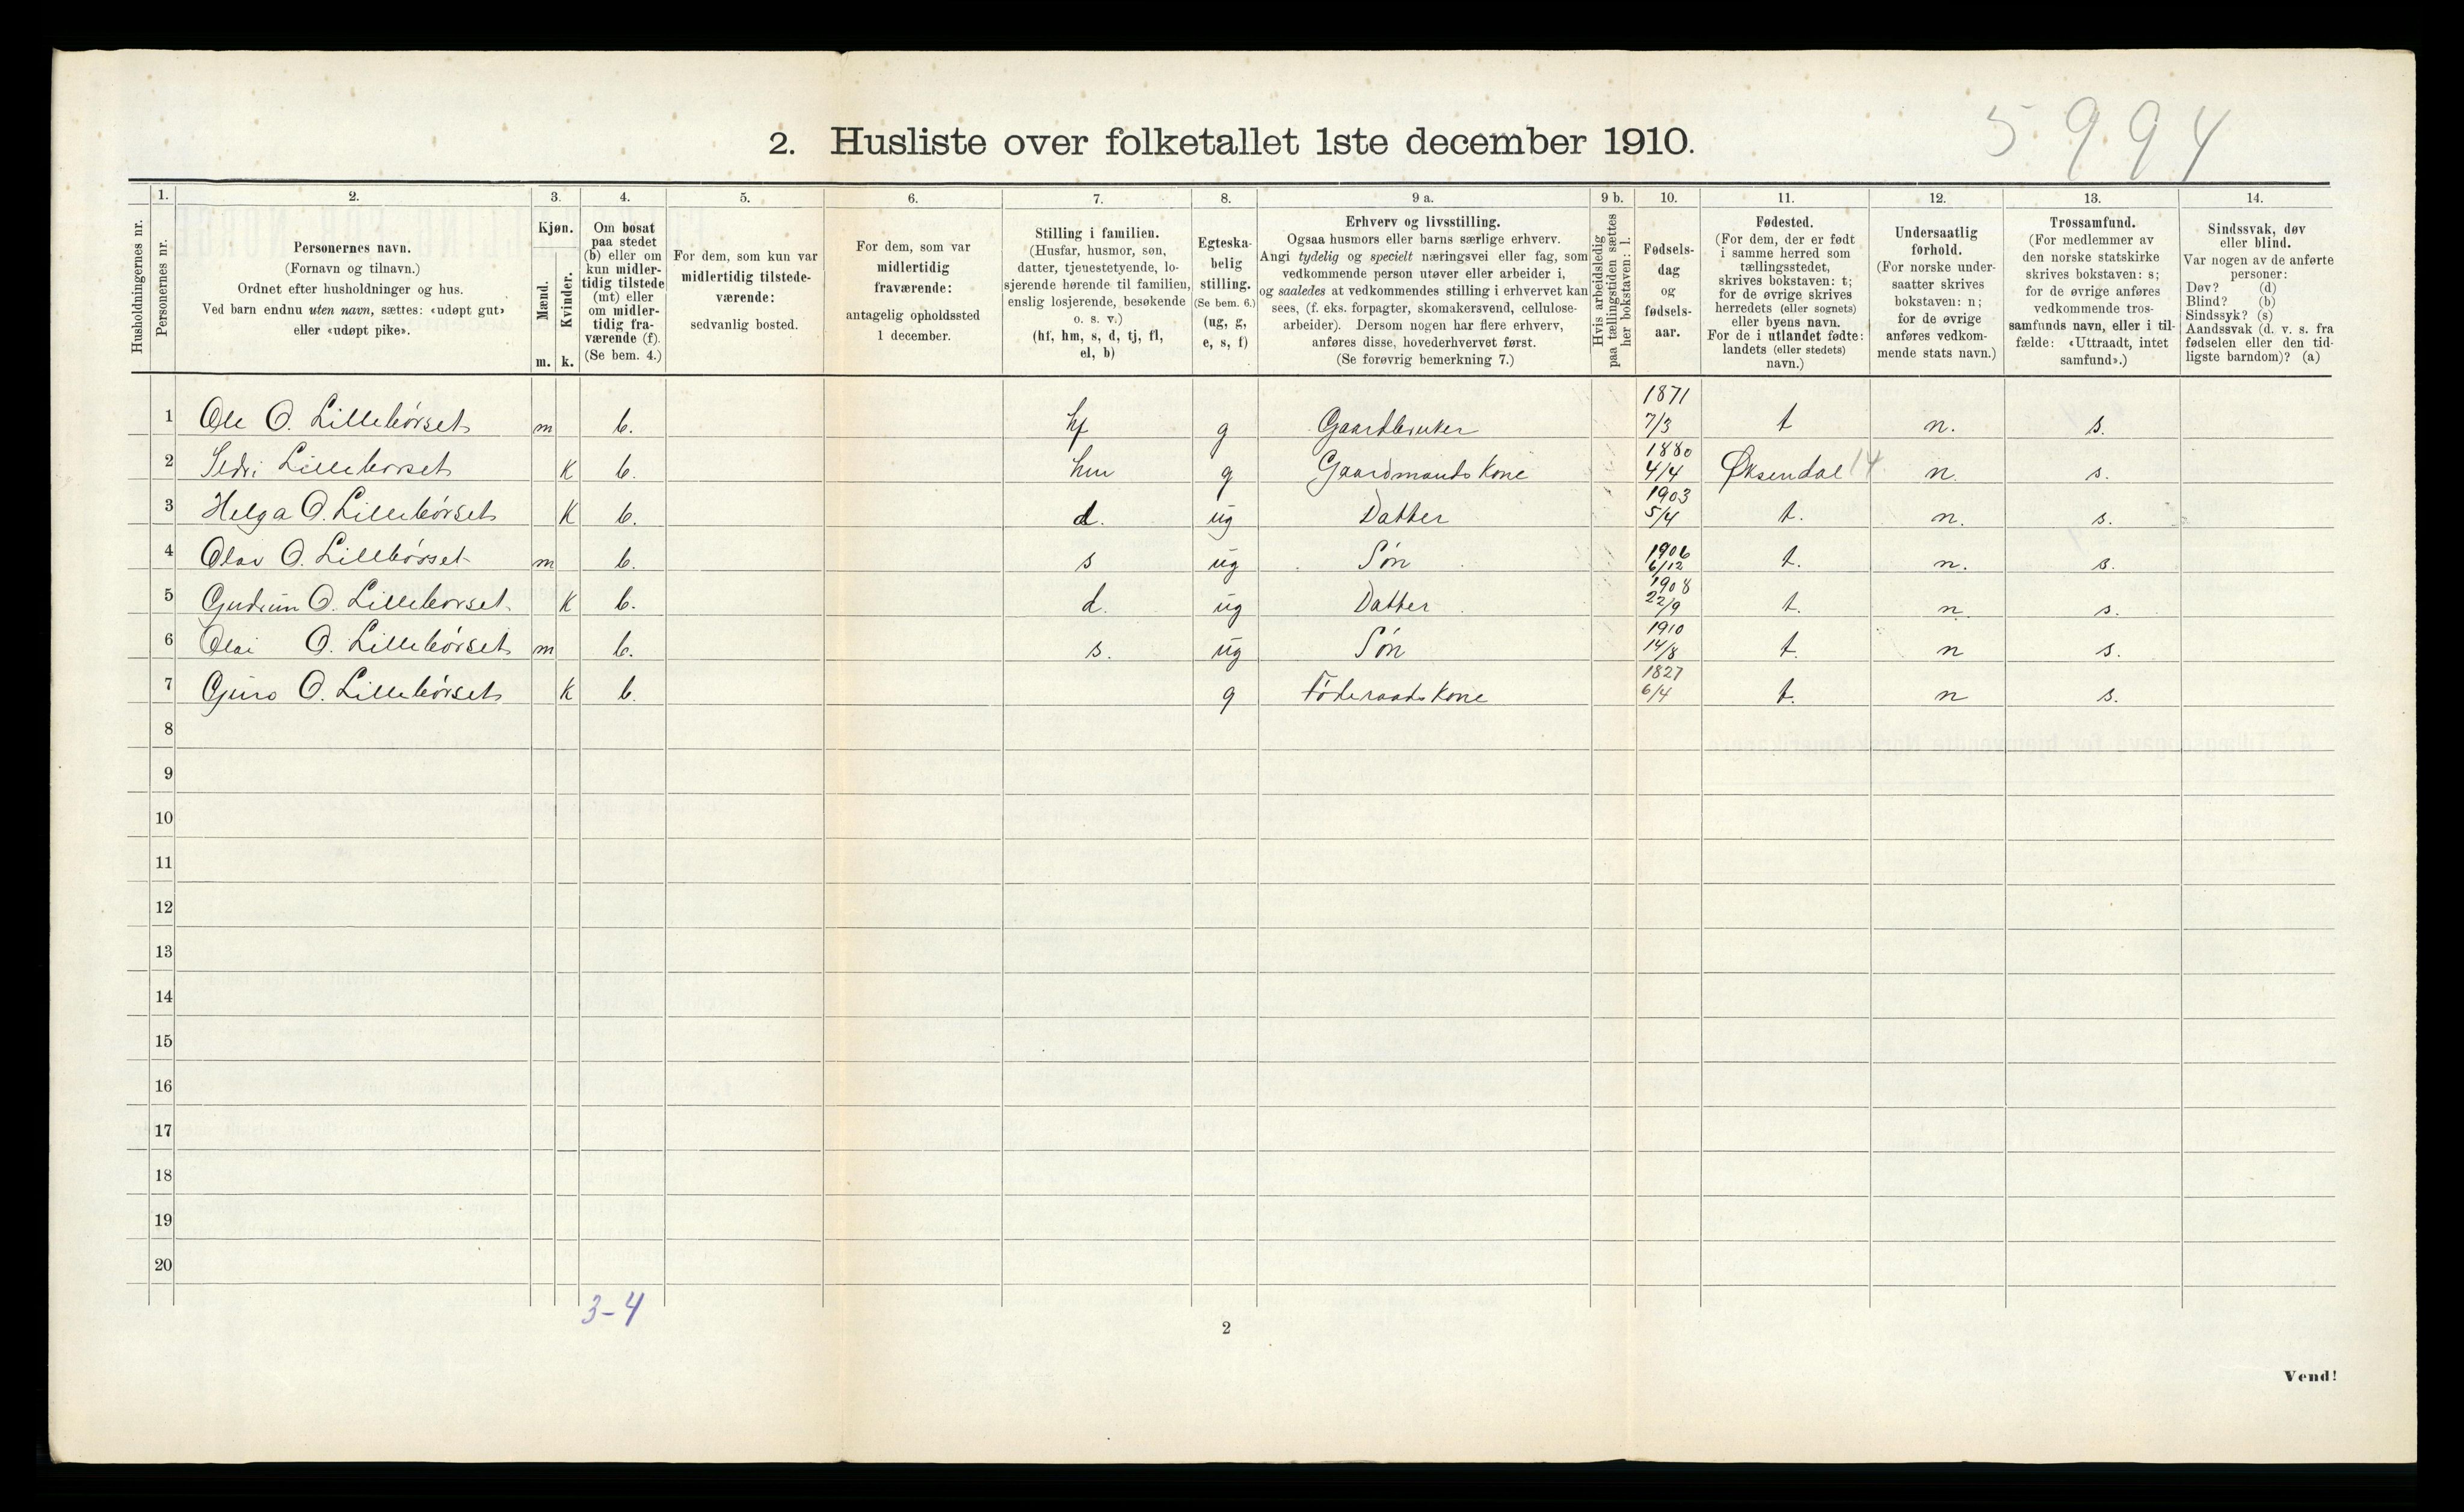 5994
2. Husliste over folketallet 1ste december 1910.
1. 2. 3. 4. 5. 6. 7. 8. 9 a. 9 b. 10. 11. 12. 13. 14.
Husholdningernes nr.
Personernes nr.
Personernes navn.
(Fornavn og tilnavn.)
Ordnet efter husholdninger og hus.
Ved barn endnu uten navn, sættes: «udøpt gut»
eller «udøpt pike».
Kjøn.
Mænd.
Kvinder.
m. k.
Om bosat
paa stedet
(b) eller om
kun midler-
tidig tilstede
(mt) eller
om midler-
tidig fra-
værende (f).
(Se bem. 4.)
For dem, som kun var
midlertidig tilstede-
værende:
sedvanlig bosted.
For dem, som var
midlertidig
fraværende:
antagelig opholdssted
1 december.
Stilling i familien.
(Husfar, husmor, søn,
datter, tjenestetyende, lo-
sjerende hørende til familien,
enslig losjerende, besøkende
o. s. v.)
(hf, hm, s, d, tj, fl,
el, b)
Egteska-
belig
stilling.
(Se bem. 6.)
(ug, g,
e, s, f)
Erhverv og livsstilling.
Ogsaa husmors eller barns særlige erhverv.
Angi tydelig og specielt næringsvei eller fag, som
vedkommende person utøver eller arbeider i,
og saaledes at vedkommendes stilling i erhvervet kan
sees, (f. eks. forpagter, skomakersvend, cellulose-
arbeider). Dersom nogen har flere erhverv,
anføres disse, hovederhvervet først.
(Se forøvrig bemerkning 7.)
Hvis arbeidsledig
paa tællingstiden sættes
her bokstaven: l.
Fødsels-
dag
og
fødsels-
aar.
Fødested.
(For dem, der er født
i samme herred som
tællingsstedet,
skrives bokstaven: t;
for de øvrige skrives
herredets (eller sognets)
eller byens navn.
For de i utlandet fødte:
landets (eller stedets)
navn.)
Undersaatlig
forhold.
(For norske under-
saatter skrives
bokstaven: n;
for de øvrige
anføres vedkom-
mende stats navn.)
Trossamfund.
(For medlemmer av
den norske statskirke
skrives bokstaven: s;
for de øvrige anføres
vedkommende tros-
samfunds navn, eller i til-
fælde: «Uttraadt, intet
samfund».)
Sindssvak, døv
eller blind.
Var nogen av de anførte
personer:
Døv? (d)
Blind? (b)
Sindssyk? (s)
Aandssvak (d. v. s. fra
fødselen eller den tid-
ligste barndom)? (a)
1 Ole O. Lillebórset m b. hf g Gaardbruker 1871 7/3 t n. s.
2 Lilleborset K b. hm g Gaardmands Kone 1880 4/4 Øksendal 14 n. s.
3 Helga O. Lillebórset K b. d. ug Datter 1903 5/4 t. n. s.
4 Olav O. Lillebórset m b. s ug Són 1906 6/12 t. n. s.
5 Gudrun O. Lilleborset K b. d. ug Datter 1908 22/9 t. n. s.
6 Olai O. Lillebórset m b. s. ug Són 1910 14/8 t. n s.
7 Guro O. Lillebórset K b. g Fóderaads Kone 1827 6/4 t. n s.
8
9
10
11
12
13
14
15
16
17
18
19
20
3-4
2
Vend!